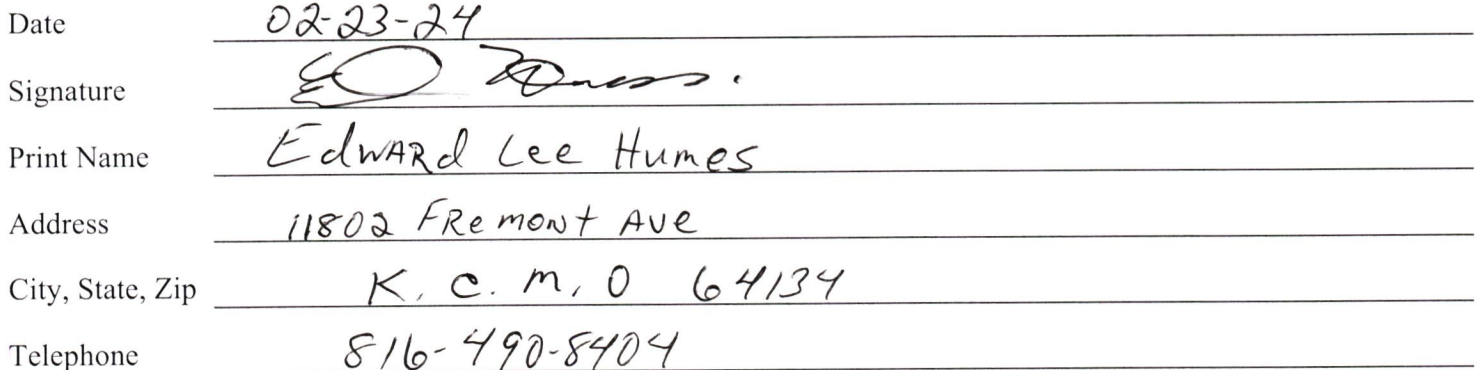 Date 02-23-24
Signature
Print Name EdwARd Lee Humes
Address 11802 FRemont Ave
City, State, Zip K. C. M. O 64134
Telephone 816-490-8404